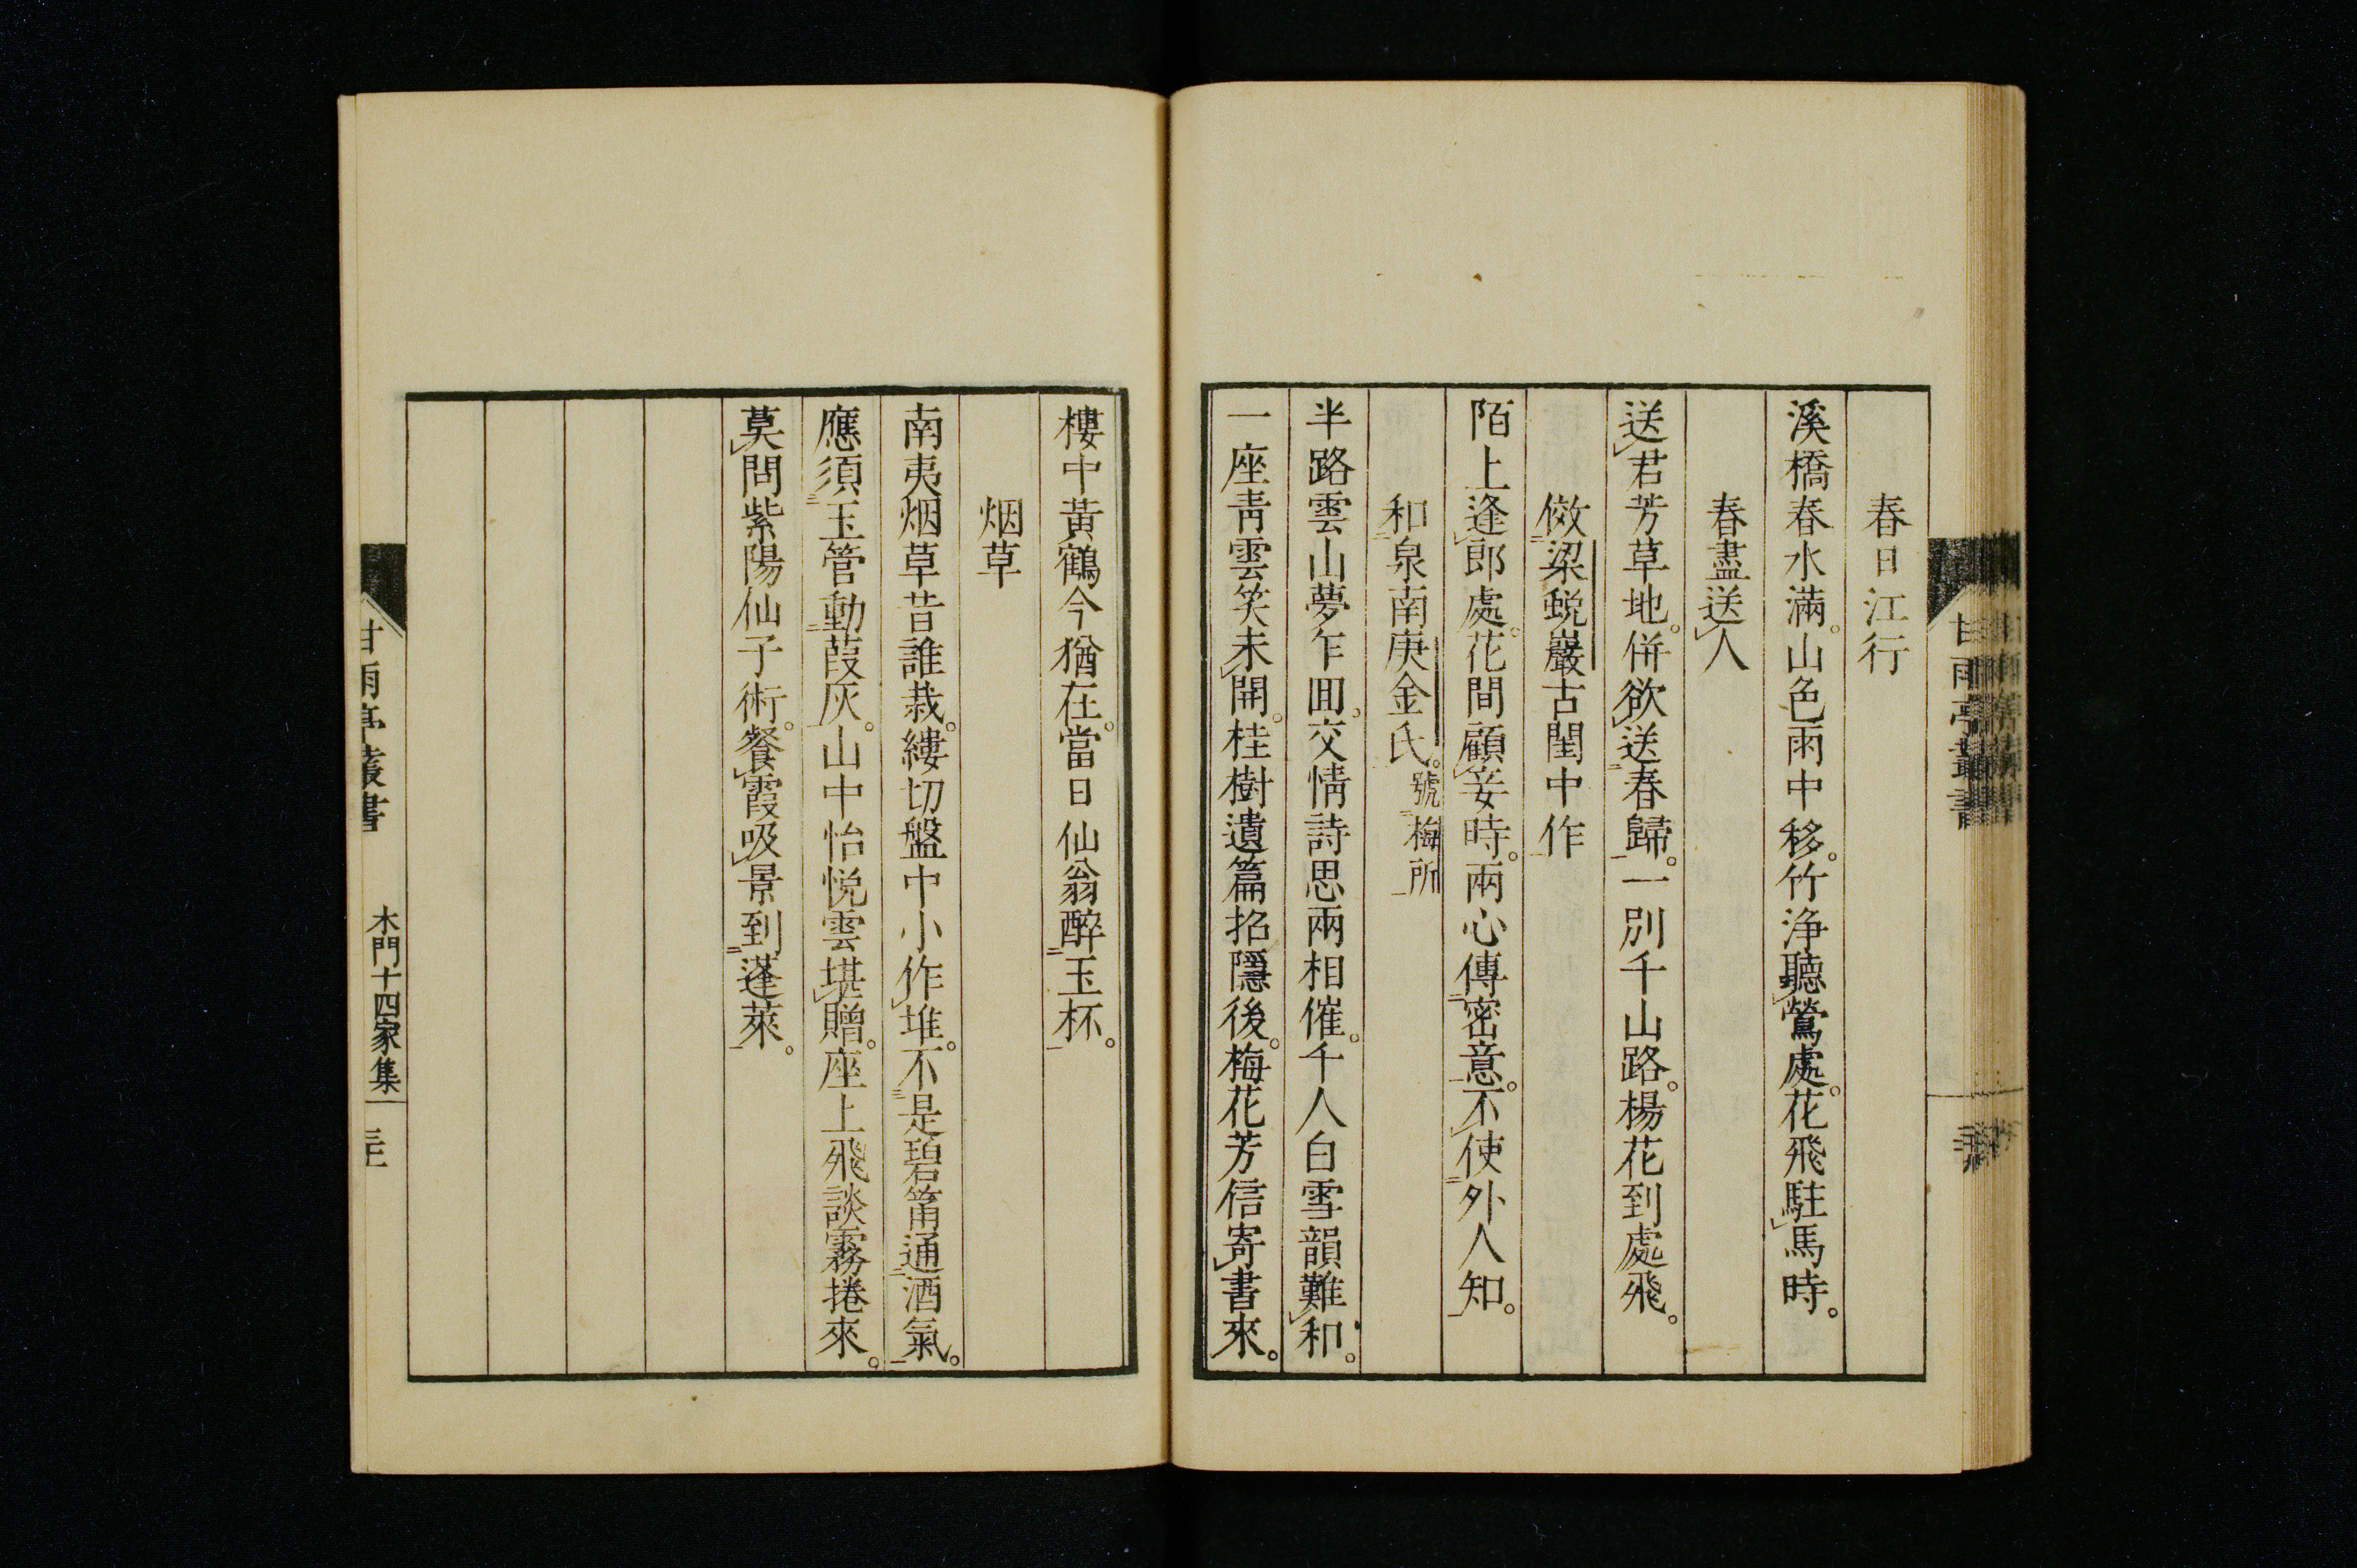 春日江行
溪橋春水滿。山色雨中移。竹淨聽鶯處。花飛駐馬時。
春盡送人
送君芳草地。併欲送春歸。一別千山路。楊花到處飛。
傚梁蛻巖古閨中作
陌上逢郎處。花間顧妾時。兩心傳密意。不使外人知。
和泉南唐金氏。號梅所
半路雲山夢乍囬。交情詩思兩相催。千人白雪韻難和。
一座靑雲笑未開。桂樹遺篇招隱後。梅花芳信寄書來。
樓中黃鶴今猶在。當日仙翁醉玉杯。
烟草
南夷烟草昔誰栽。縷切盤中小作堆。不是碧筩通酒氣。
應須玉管動葭灰。山中怡悅雲堪贈。座上飛談霧捲來。
莫問紫陽仙子術。餐霞吸景到蓬萊。
甘雨亭叢書
木門十四家集
甘雨亭叢書